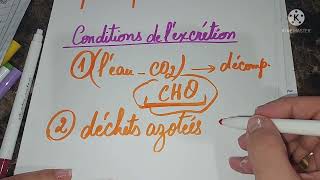 Conditions de l'excrétion
① (l'eau - CO₂) → décomp.
CHO
② déchets azoteés
KINEMASTER